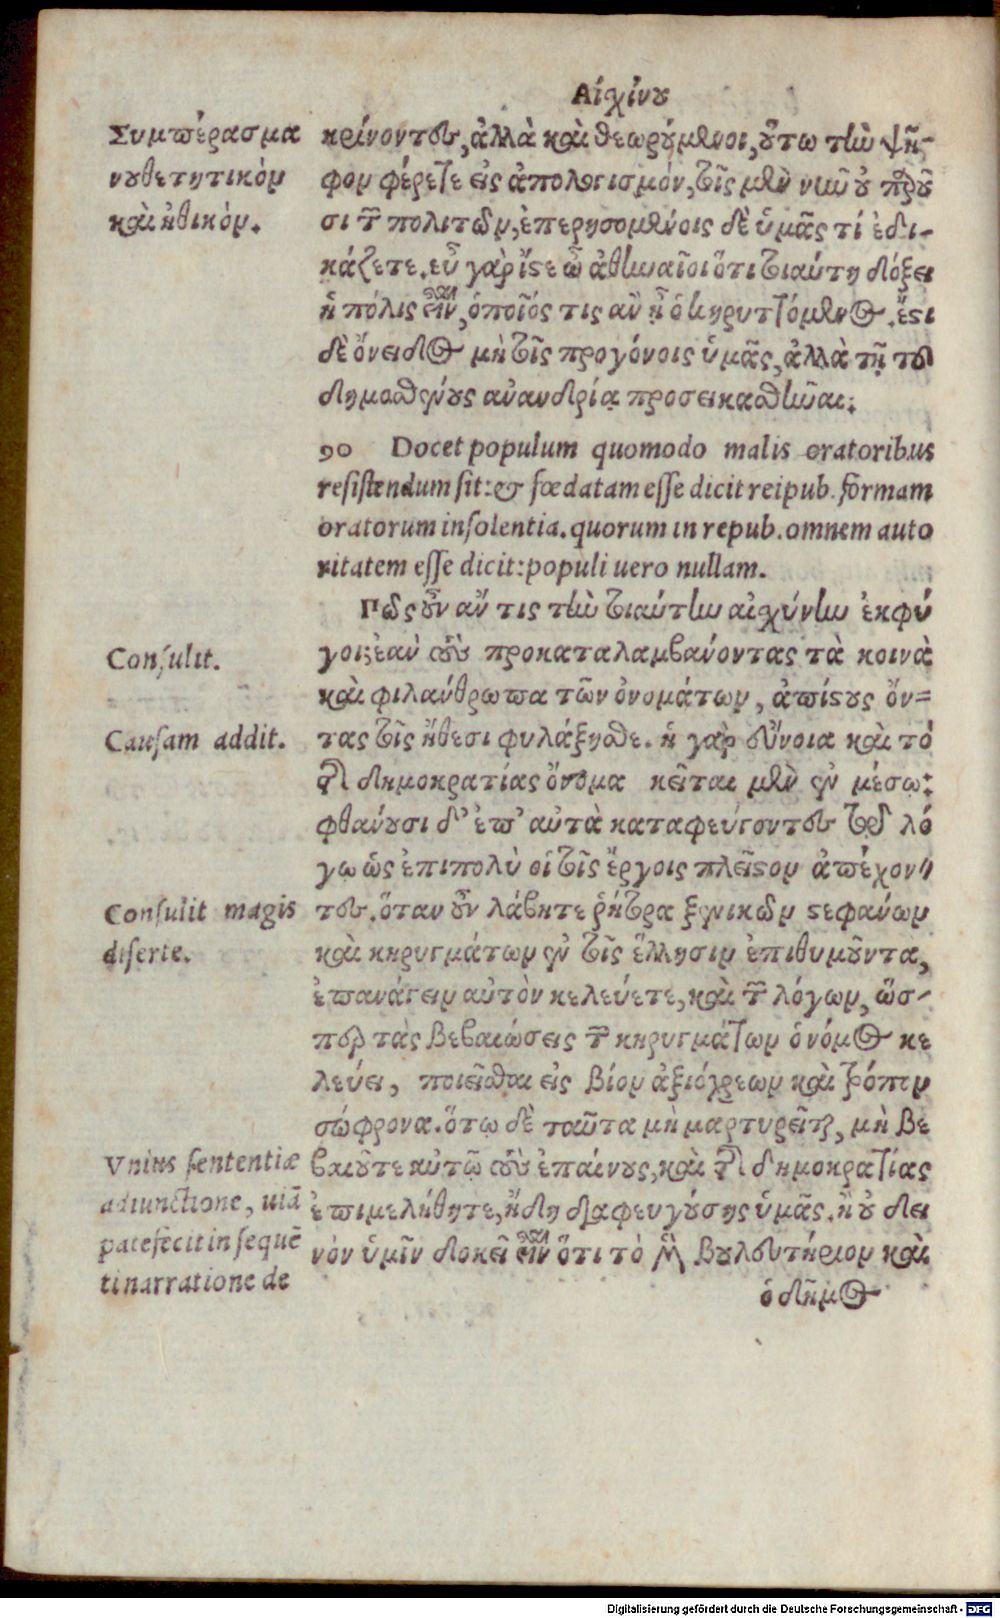 Αἰχίνου
Συμπέρασμα
νουθετητικὸν
καὶ ἠθικόν.
κρίνοντες, ἀλλὰ καὶ θεωρούμενοι, οὕτω τὴν ψῆ-
φον φέρετε εἰς ἀπολογισμόν, τοῖς μὲν νῦν οὐ παροῦ
σι τῶν πολιτῶν, ἐπερησομένοις δὲ ὑμᾶς τί ἐδι-
κάζετε. εὖ γὰρ ἴστε ὦ ἀθηναῖοι ὅτι τοιαύτη δόξει
ἡ πόλις εἶναι, ὁποῖός τις ἂν ᾖ ὁ κηρυττόμενος. ἔστι
δὲ ὄνειδος μὴ τοῖς προγόνοις ὑμᾶς, ἀλλὰ τῇ τοῦ
δημοσθένους ἀνανδρίᾳ προσεικασθῆναι.
90 Docet populum quomodo malis oratoribus
resistendum sit: & fœdatam esse dicit reipub. formam
oratorum insolentia. quorum in repub. omnem auto
ritatem esse dicit: populi uero nullam.
Πῶς οὖν ἄν τις τὴν τοιαύτην αἰχύνην ἐκφύ
Consulit.
γοι; ἐὰν τοὺς προκαταλαμβάνοντας τὰ κοινὰ
καὶ φιλάνθρωπα τῶν ὀνομάτων, ἀπίστους ὄν=
Causam addit.
τας τοῖς ἤθεσι φυλάξησθε. ἡ γὰρ εὔνοια καὶ τὸ
τῆς δημοκρατίας ὄνομα κεῖται μὲν ἐν μέσῳ:
φθάνουσι δ' ἐπ' αὐτὰ καταφεύγοντες τῷ λό
γῳ ὡς ἐπιπολὺ οἱ τοῖς ἔργοις πλεῖστον ἀπέχον//
Consulit magis
diserte.
τες. ὅταν οὖν λάβητε ῥήτορα ξενικῶν στεφάνων
καὶ κηρυγμάτων ἐν τοῖς ἕλλησιν ἐπιθυμοῦντα,
ἐπανάγειν αὐτὸν κελεύετε, καὶ τῶν λόγων, ὥσ-
περ τὰς βεβαιώσεις τῶν κηρυγμάτων ὁ νόμος κε
λεύει, ποιεῖσθαι εἰς βίον ἀξιόχρεων καὶ τρόπον
σώφρονα. ὅτῳ δὲ ταῦτα μὴ μαρτυρεῖται, μὴ βε
Vnius sententiæ
adiunctione, uiā
patefecit in sequē
ti narratione de
βαιοῦτε αὐτῷ τοὺς ἐπαίνους, καὶ τῆς δημοκρατίας
ἐπιμελήθητε, ἤδη διαφευγούσης ὑμᾶς. ἢ οὐ δει
νὸν ὑμῖν δοκεῖ εἶναι ὅτι τὸ μὲν βουλευτήριον καὶ
ὁ δῆμος